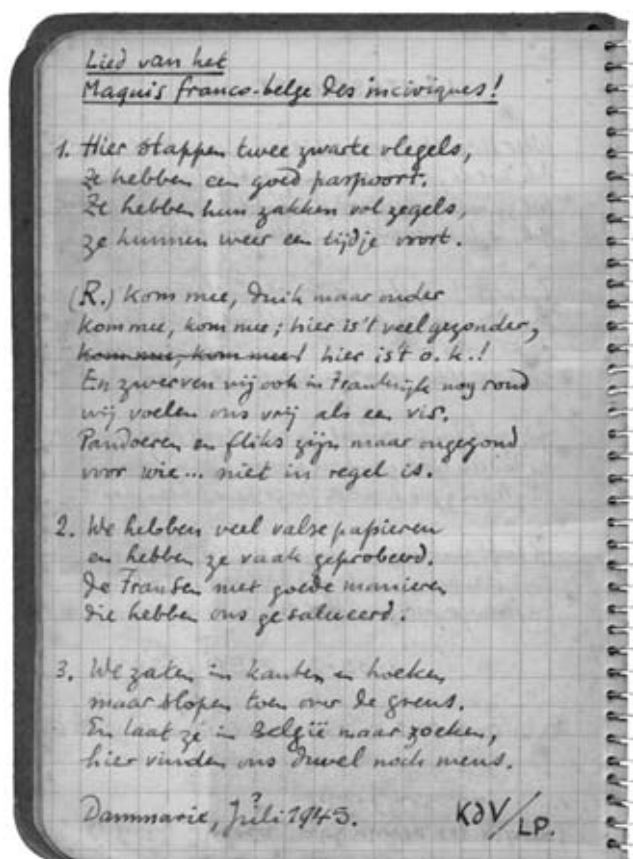 Lied van het
Maquis franco-belge des inciviques!
1. Hier stappen twee zwarte vlegels,
ze hebben een goed paspoort.
Ze hebben hun zakken vol zegels,
ze kunnen weer een tijdje voort.
(R.) Kom mee, duik maar onder
kom mee, kom mee; hier is't veel gezonder,
kom mee, kom mee! hier is't o.k.!
En zwerven wij ook in Frankrijk nog rond
wij voelen ons vrij als een vis.
Pandoeren en fliks zijn maar ongezond
voor wie... niet in regel is.
2. We hebben veel valse papieren
en hebben ze vaak geprobeerd.
De Fransen met goede manieren
die hebben ons gesalueerd.
3. We zaten in kanten en hoeken
maar slopen toen over de grens.
En laat ze in België maar zoeken,
hier vinden ons duvel noch mens.
Dammarie, Juli? 1945. KDV/LP.